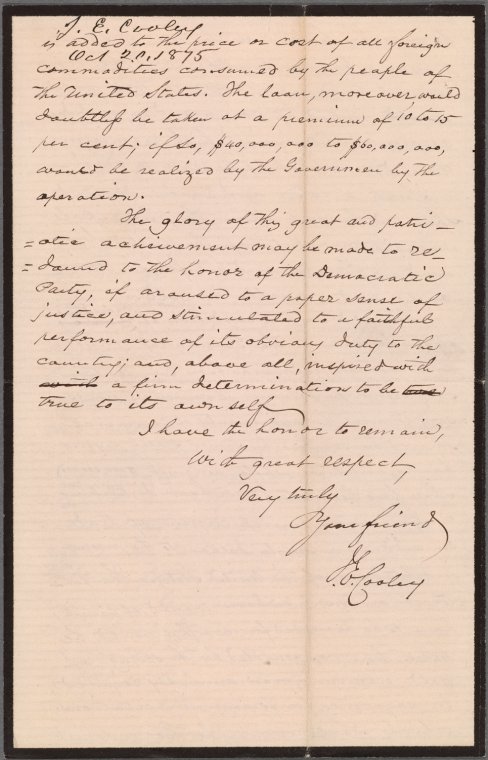 J. E. Cooley
is added to the price or cost of all foreign
Oct 20, 1875
commodities consumed by the people of
the United States. The loan, moreover, would
doubtless be taken at a premium of 10 to 15
per cent; if so, $40,000,000 to $60,000,000,
would be realized by the Governmen by the
operation.
The glory of this great and patri-
=otic acheivement may be made to re-
=dound to the honor of the Democratic
Party, if aroused to a proper sense of
justice, and stimulated to a faithful
performance of its obvious duty to the
country; and, above all, inspired with
with a firm determination to be true
true to its own self
I have the honor to remain,
With great respect,
Very truly
Your friend
J. E. Cooley